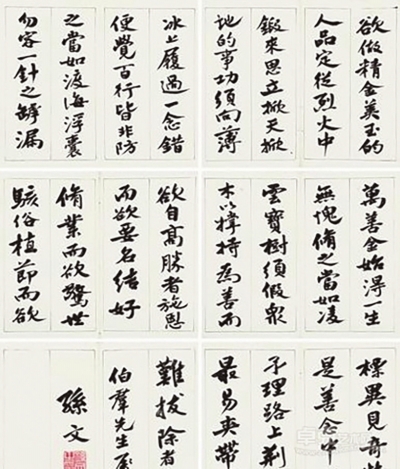 欲做精金美玉的
人品定從烈火中
鍛來思立掀天揭
地的事功須向薄
冰上履過一念錯
便覺百行皆非防
之當如渡海浮囊
勿容一針之罅漏
萬善全始得一生
無愧脩之當如凌
雲寶樹須假眾
木以撐持為善而
欲自高勝者施恩
而欲要名結好
脩業而欲驚世
駭俗植節而欲
標異見奇
是善念中
予理路上荆
最易夾帶
難拔除者
伯羣先生屬
孫文